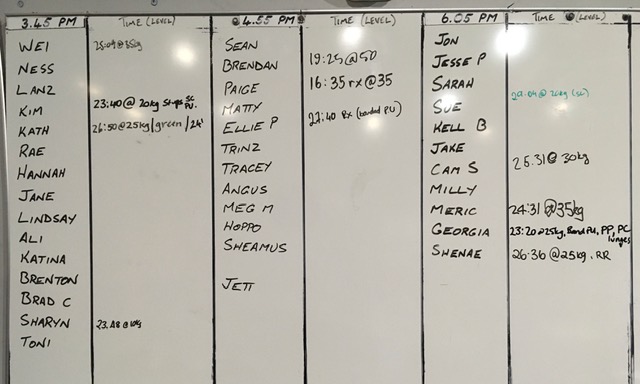 3.45 PM TIME (LEVEL) 4.55 PM TIME (LEVEL) 6.05 PM TIME (LEVEL)
WEI
NESS
LANZ
KIM 23:40 @ 20kg Steps SC PU.
KATH 26:50 @ 25kg/green/24"
RAE
HANNAH
JANE
LINDSAY
ALI
KATINA
BRENTON
BRAD C
SHARYN 23.48 @ 10kg
TONI
SEAN
BRENDAN 19:25 @ 50
PAIGE 16:35 rx @ 35
MATTY
ELLIE P 27:40 Rx (banded PU)
TRINZ
TRACEY
ANGUS
MEG M
HOPPO
SHEAMUS
JETT
JON
JESSE P
SARAH
SUE 29:04 @ 20kg (SC)
KELL B
JAKE
CAM S 25.31 @ 30kg
MILLY
MERIC 24:31 @ 35kg
GEORGIA 23:20 @ 25kg, Band PU, PP, PC
lunges
SHENAE 26:36 @ 25kg. RR